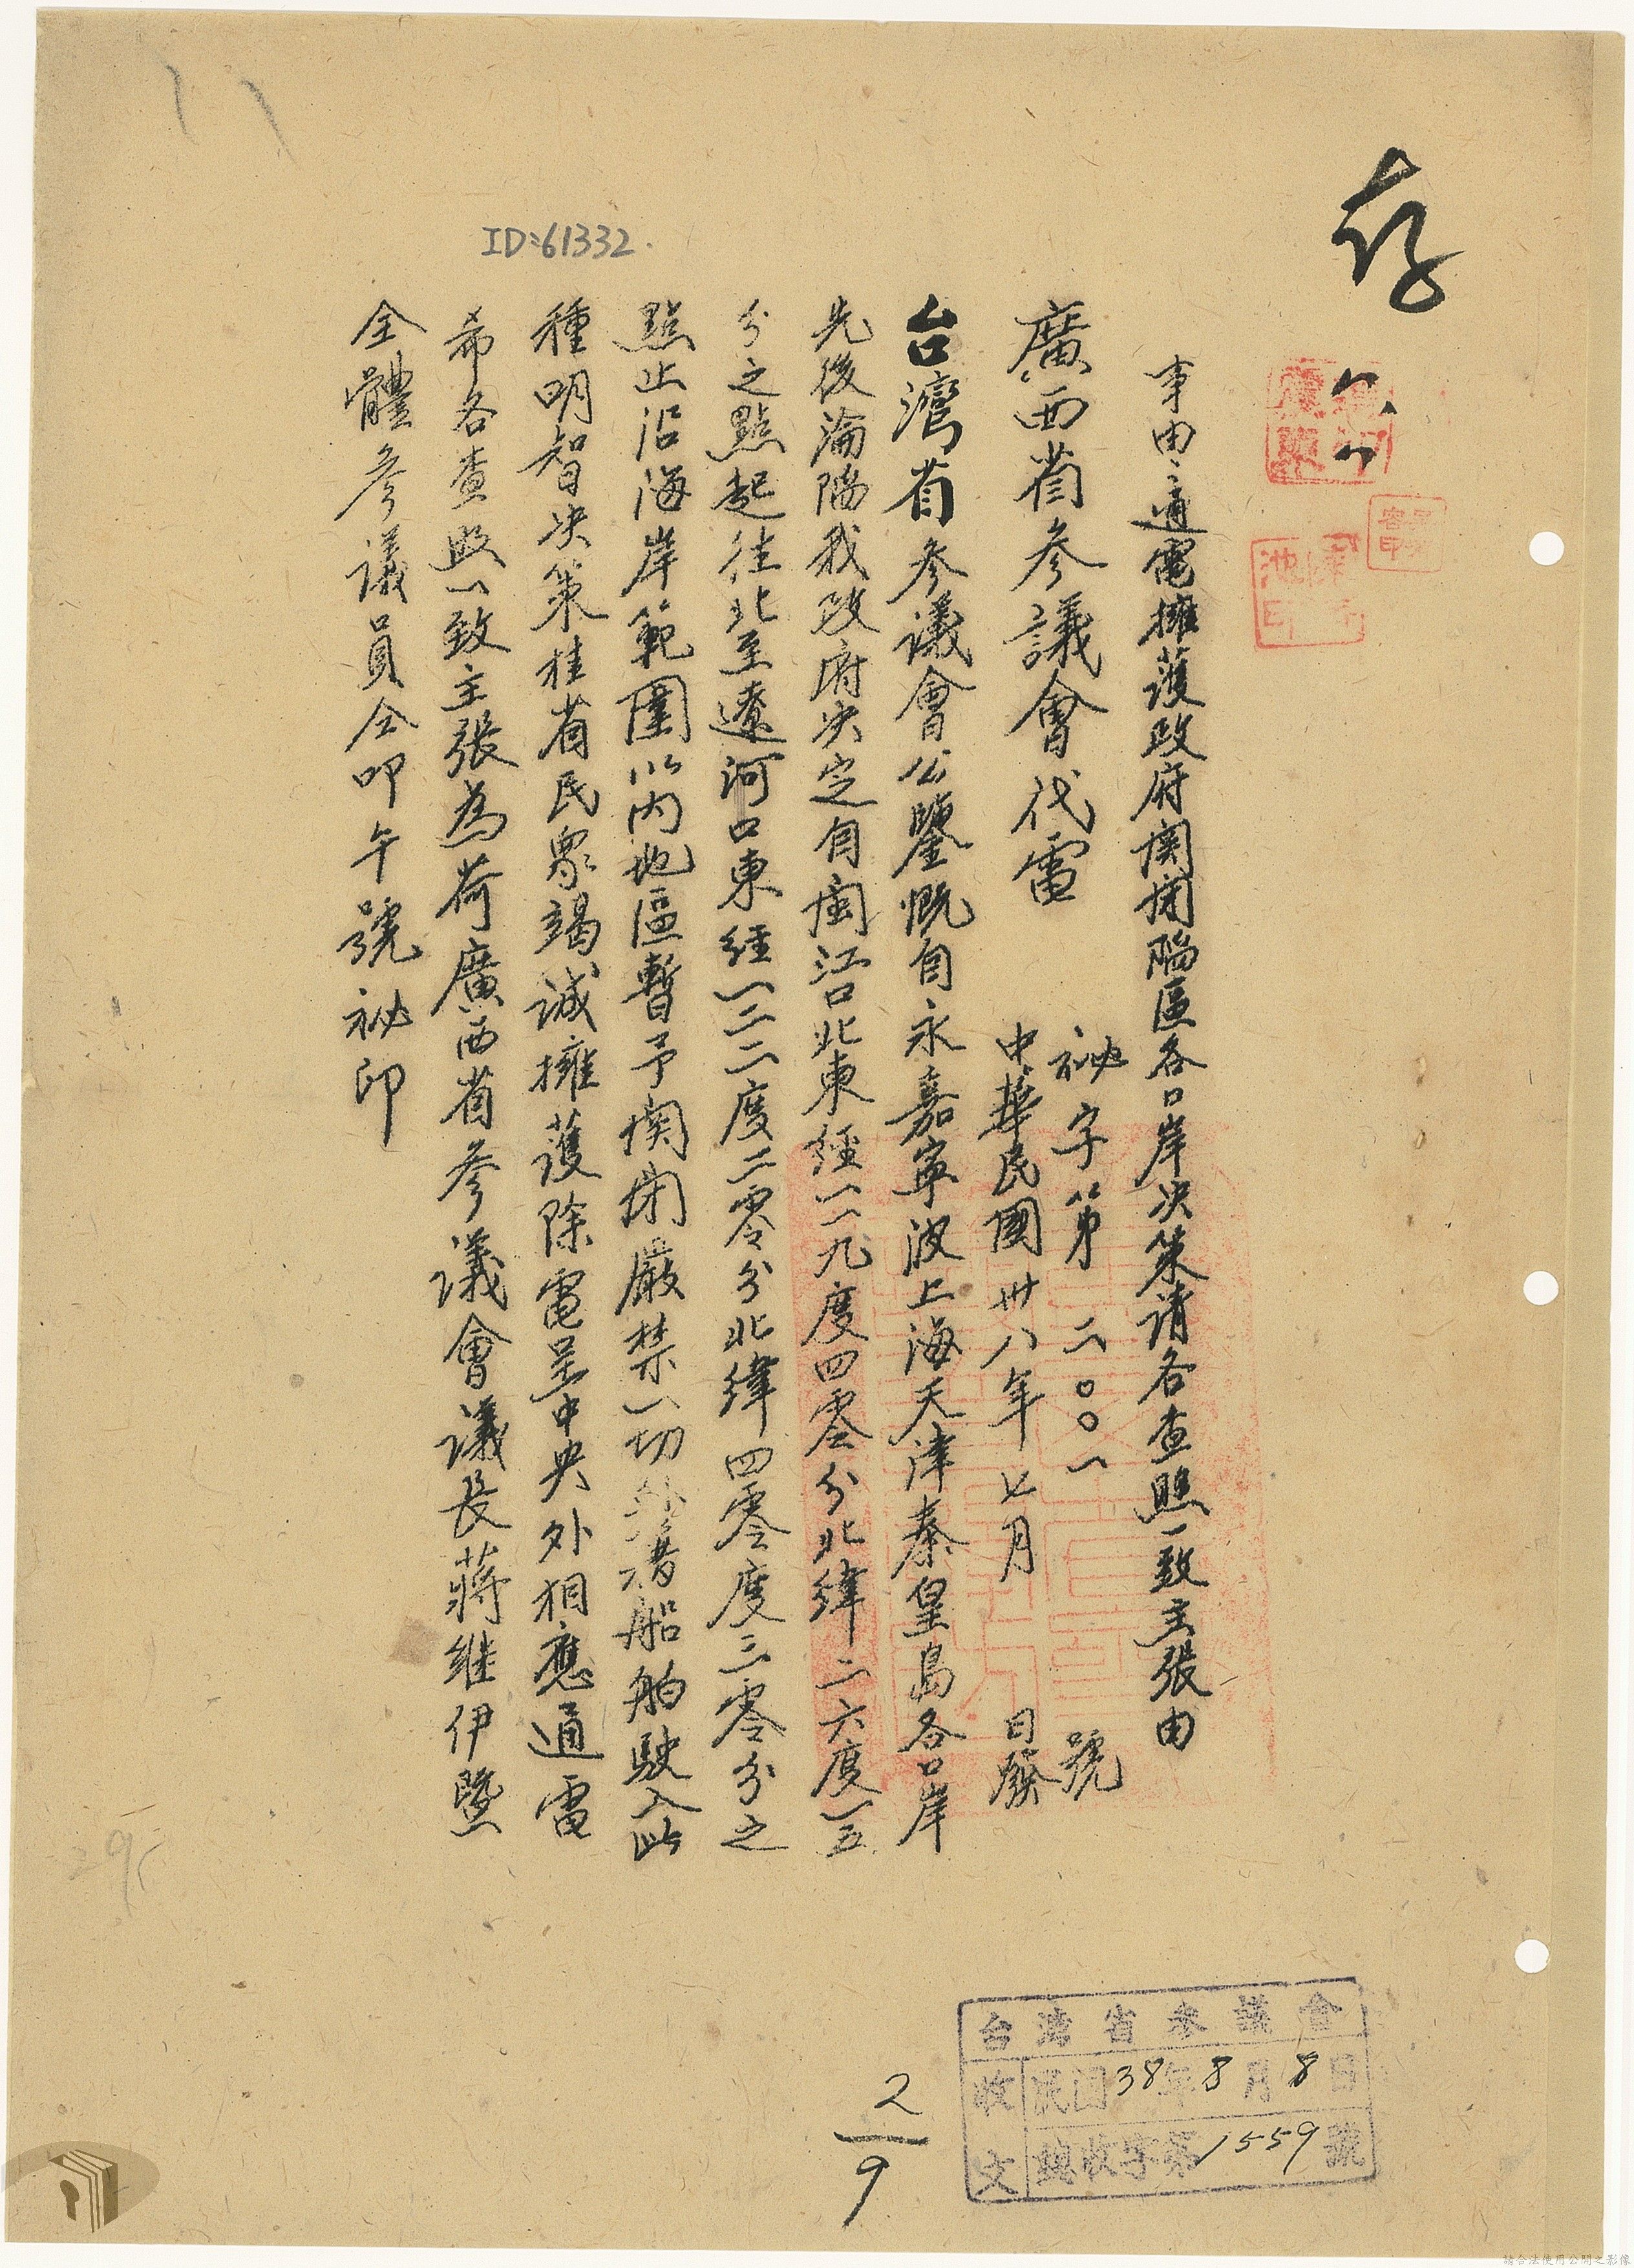 存
事由：通電擁護政府関閉陷區各口岸决策请各查照一致主張由
廣西省参議會代電
祕字第二〇〇一號
中華民國卅八年七月 日發
台灣省参議會公鑒慨自永嘉寧波上海天津秦皇島各口岸
先後淪陷我政府决定自閩江口北東經一一九度四零分北緯二六度一五
分之點起往北至遼河口東經一二二度二零分北緯四零度三零分之
點止沿海岸範圍以内地區暫予関閉嚴禁一切外籍船舶駛入此
種明智决策桂省民眾竭誠擁護除電呈中央外相應通電
希各查照一致主張為荷廣西省参議會議長蔣继伊暨
全體参議員仝叩午號祕印
ID:61332.
台灣省参議會
收文
民国38年8月8日
總收字第1559號
2/9
請合法使用公開之影像